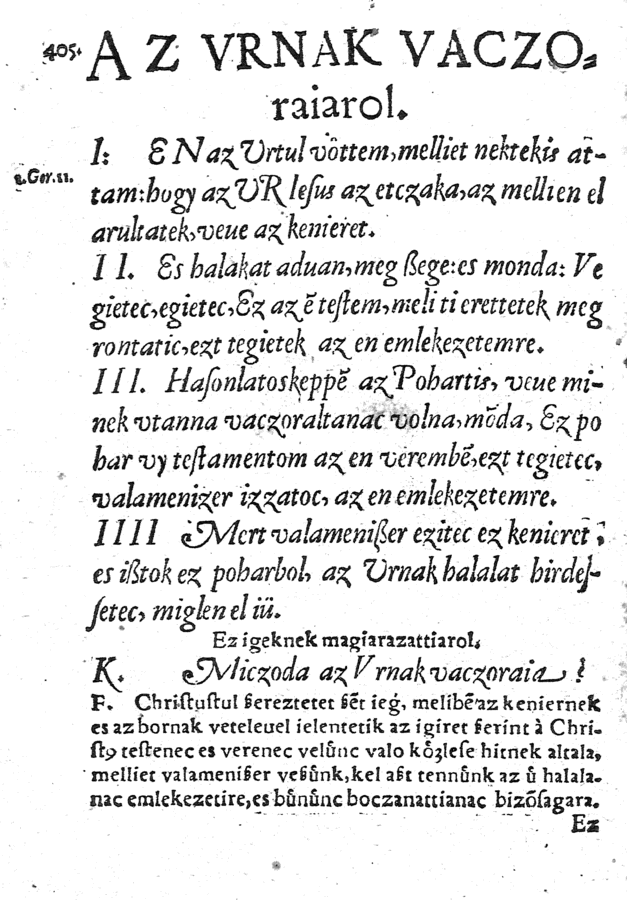 405. AZ VRNAK VACZO⸗
raiarol.
I: EN az Vrtul vo̊ttem, melliet nektekis at̃-
1. Cor. 11. tam: hogy az VR Iesus az etczaka, az mellien el
arultatek, veue az kenieret.
II. Es halakat aduan, meg ßege: es monda: Ve
gietec, egietec, Ez az ẽ teſtem, meli ti erettetek meg
rontatic, ezt tegietek az en emlekezetemre.
III. Haſonlatoskeppẽ az Pohartis, veue mi-
nek vtanna vaczoraltanac volna, mõda, Ez po
har vy teſtamentom az en verembẽ, ezt tegietec,
valamenizer izzatoc, az en emlekezetemre.
IIII Mert valameniſzer ezitec ez kenieret ;
es ißtok ez poharbol, az Vrnak halalat hirdeſ-
ſetec, miglen el iü.
Ez igeknek magiarazattiarol.
K. Miczoda az Vrnak vaczoraia ?
F. Chriſtuſtul ßereztetet ßẽt ieg, melibẽ az keniernek
es az bornak veteleuel ielentetik az igiret ßerint à Chri-
ſtꝰ teſtenec es verenec velůnc valo ko̊zleſe hitnek altala,
melliet valamenißer veßůnk, kel aßt tennůnk az ů halala-
nac emlekezetire, es bůnůnc boczanattianac bizõſagara.
Ez